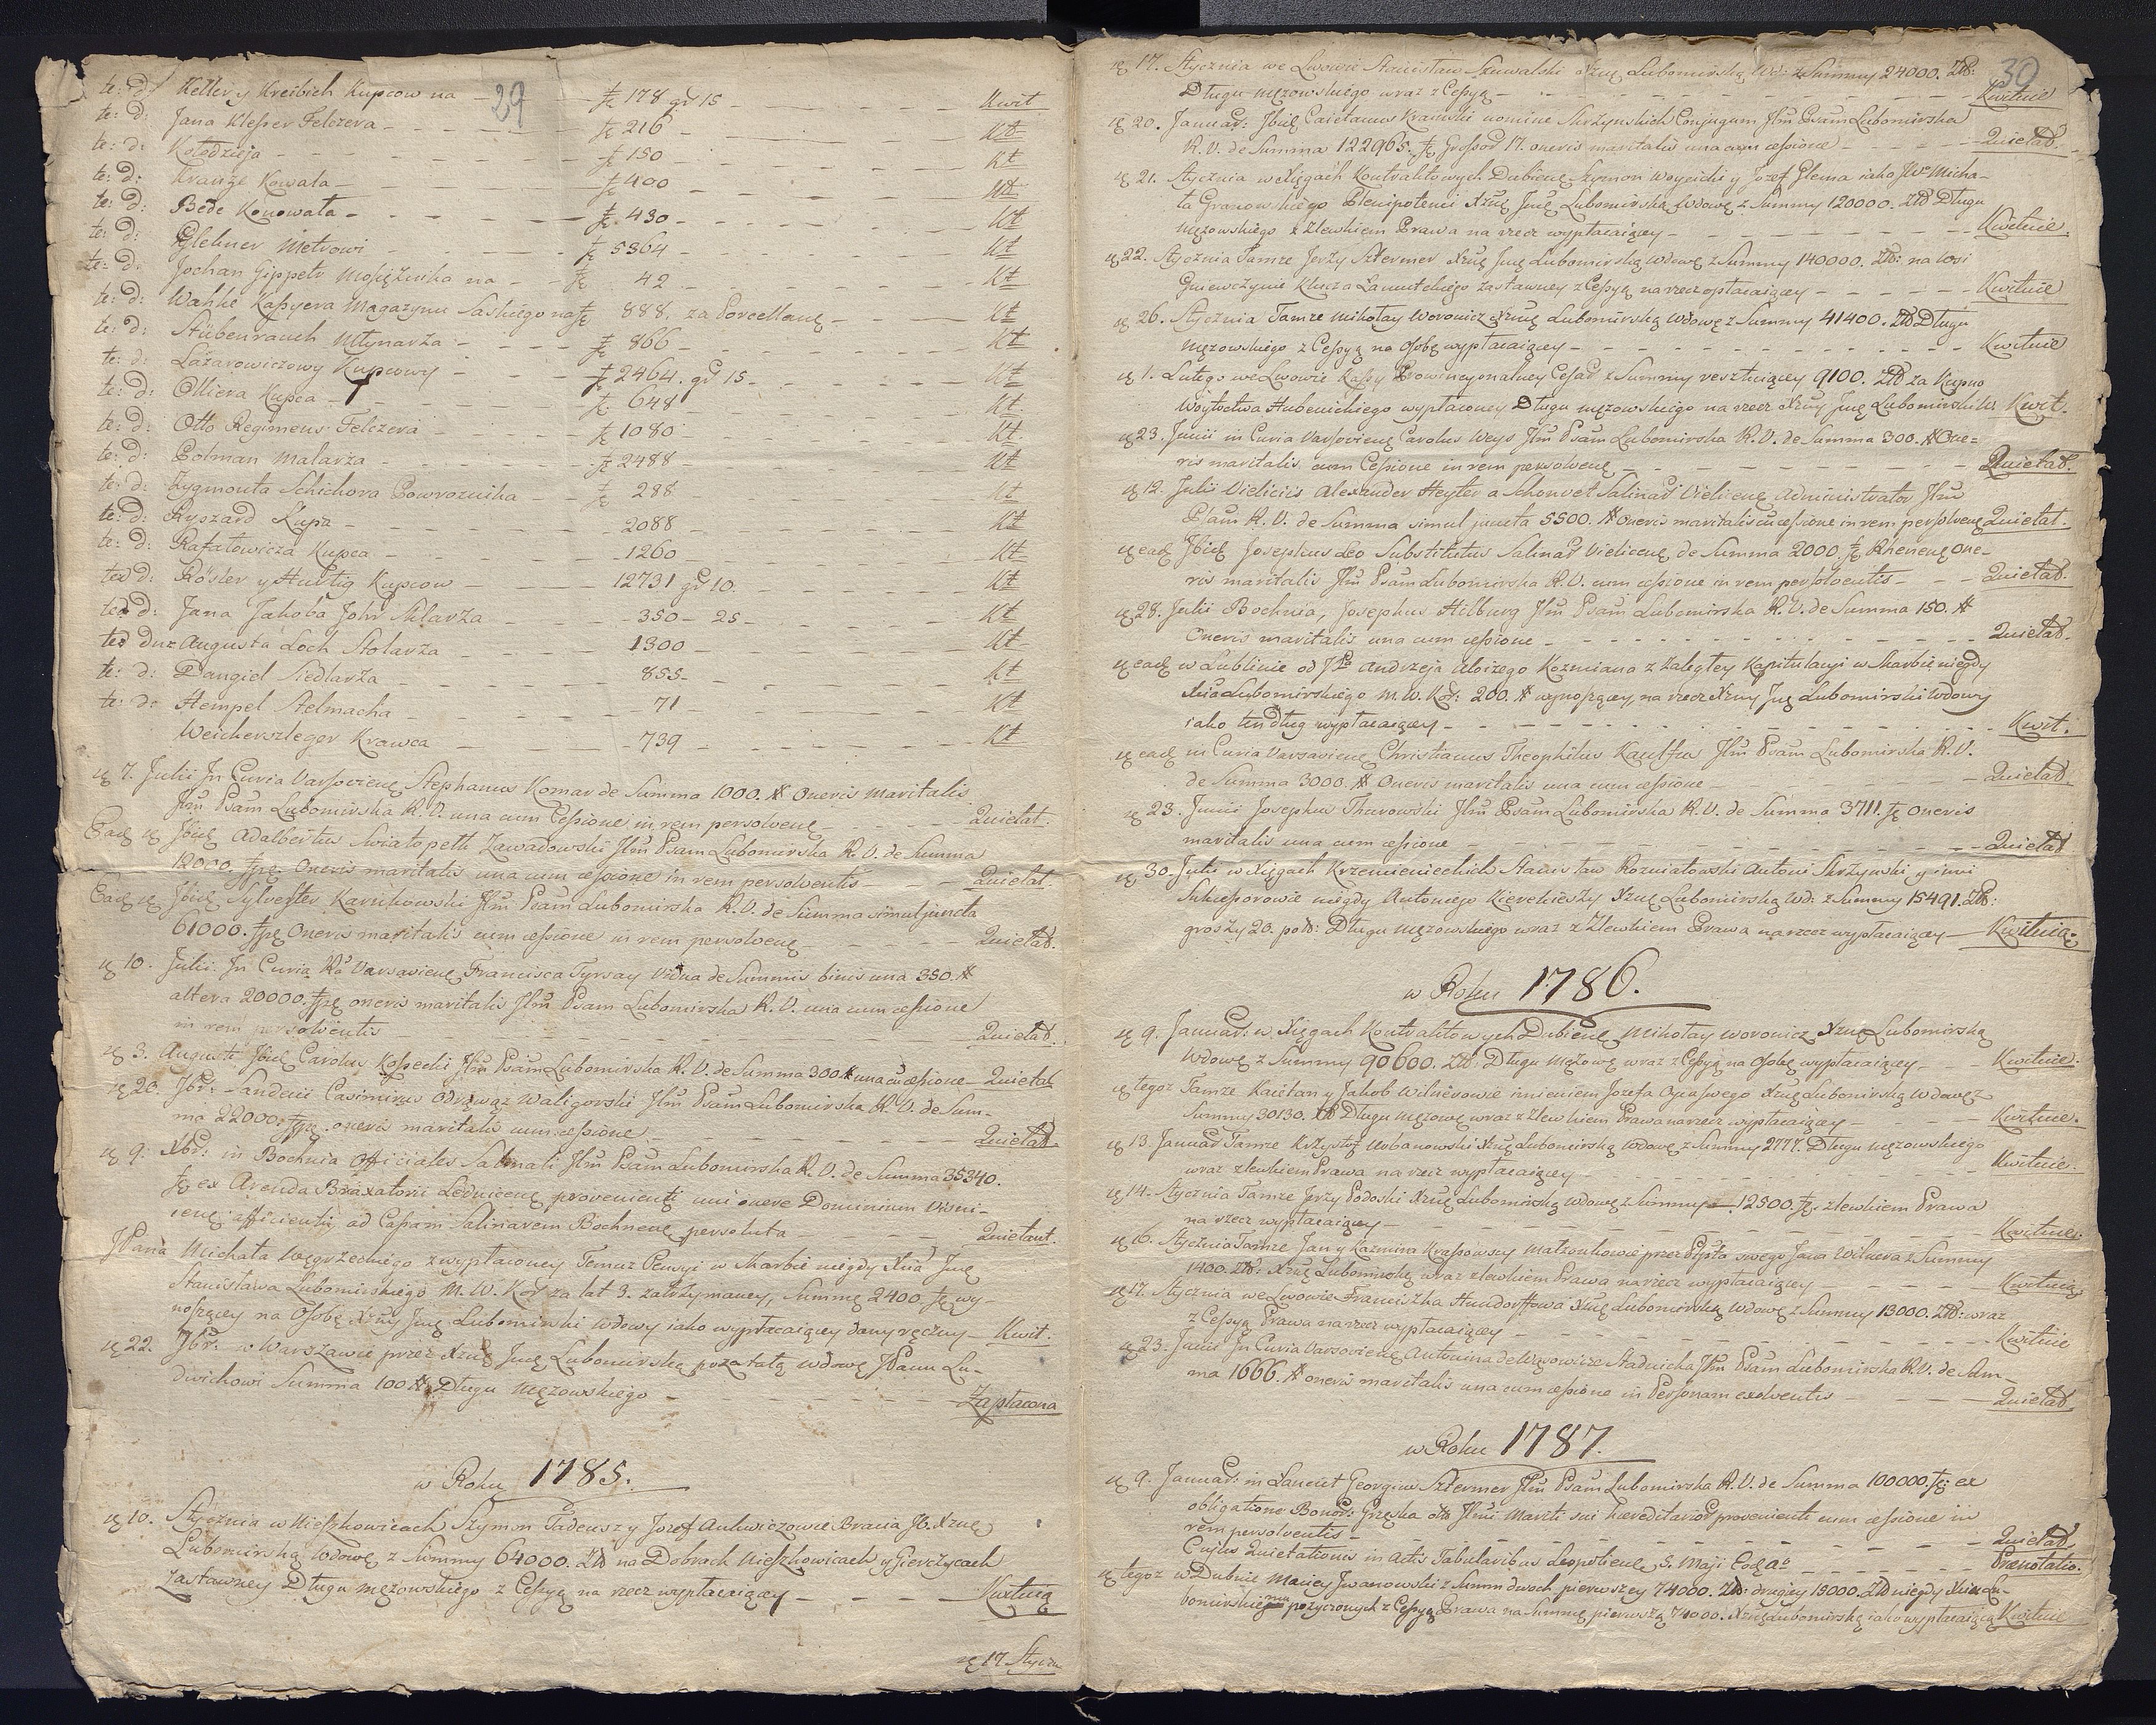 29
te: d: Keller y Kreibich Kupcow na - - 178 gr 15 - - Kwit
te: d: Jana Klesser Felczera - - 216 - - Kt
te: d: Kołodzieja - - 150 - - Kt
te: d: Krauze Kowala - - 400 - - Kt
te: d: Bede Konowała - - 430 - - Kt
te: d: Glehner Metrowi - - 5364 - - Kt
te: d: Jochan Gippetr Mosiężnika na - - 42 - - Kt
te: d: Wahhe Kassyera Magazynu Saskiego na 888. za Porcellanę - - Kt
te: d: Stübenrauch Młynarza - - 866 - - Kt
te: d: Łazarowiczowy Kupcowy - - 2464. gr 15 - - Kt
te: d: Olliera Kupca - - 648 - - Kt
te: d: Otto Regimens: Felczera - - 1080 - - Kt
te: d: Polman Malarza - - 2488 - - Kt
te: d: Zygmonta Schichora Powroznika - - 288 - - Kt
te: d: Ryszard Kupa - - 2088 - - Kt
te: d: Rafałowicza Kupca - - 1260 - - Kt
te: d: Röster y Hurtig Kupcow - - 12731 gr 10. - - Kt
te: d: Jana Jakoba John Sklarza - - 350 - 25 - - Kt
te: d: Augusta Loch Stolarza - - 1300 - - Kt
te: d: Dangiel Siedlarza - - 855 - - Kt
te: d: Hempel Stelmacha - - 71 - - Kt
Weicherszleger Krawca - - 739 - - Kt
7. Julii In Curia Varsovien Stephanus Komar de Summa 1000. # Oneris Maritalis
Illm Psam Lubomirska R. V. una cum Cessione in rem persolven - - Quietat.
Ead Ibid Adalbertus Swiatopełk Zawadowski Illm Psam Lubomirska R. V. de Summa
12000. Oneris maritalis una cum cessione in rem persolventis - - Quietat.
Ead Ibid Sylvester Karnikowski Illm Psam Lubomirska R. V. de Summa simul juncta
61000. Oneris maritalis cum cessione in rem persolven - - Quietat.
10. Julii In Curia Ra Varsavien Francisca Tyrsay Vidua de Summis binis una 350. #
altera 20000. oneris maritalis Illm Psam Lubomirska R. V. una cum cessione
in rem persolventis - - Quietat.
3. Augusti Ibid Carolus Kossecki Illm Psam Lubomirska R. V. de Summa 300 # una cu cessione - Quietat
20. 7br: Sandecii Casimirus Odrowąz Waligorski Illm Psam Lubomirska R. V. de Sum-
ma 22000. oneris maritalis cum cessione - - Quietat.
9. Xbr: in Bochnia Officiales Salinali Illm Psam Lubomirska R. V. de Summa 35340.
ex Arenda Braxatorii Lednicen provenienti uni onere Dominium Visni-
cien afficientis ad Cassam Salinarem Bochnen persoluta - - Quietant.
JPana Michała Węgrzeckiego z wypłaconey Temuz Pensyi w Skarbie niegdy Xcia Jmę
Stanisława Lubomirskiego M. W. Kor za lat 3. zatrzymaney, Summę 2400 wy-
noszącey na Osobę Xzny Jmę Lubomirski Wdowy iako wypłacaiący dany ręczny - Kwit.
22. 7br: w Warszawie przez Xzną Jmę Lubomirską pozostałą wdowę JPanu Lu-
dwichowi Summa 100 # Długu Męzowskiego - - Zapłacona
w Roku 1785.
10. Stycznia w Nieszkowicach Szymon Tadeusz y Jozef Ankwiczowie Bracia Jb. Xznę
Lubomirską Wdowę z Summy 64000. Złł na Dobrach Nieszkowicach y Gierczycach
Zastawney Długu męzowskiego z Cessyą na rzecz wypłacaiącey - - Kwituią
17 Stycz:
30
17. Stycznia we Lwowie Stanisław Szuwalski Xznę Lubomirską Wd: z Summy 24000. Złł:
Długu męzowskiego wraz z Cessyą - - Kwituie
20. Januar: Ibid Caietanus Krainski nomine Skrzynskich Conjugum Illm Psam Lubomirska
R. V. de Summa 122965. Grossor 17. oneris maritalis una cum cessione - - Quietat.
21. Stycznia w Xięgach Kontraktowych Dubien Szymon Woycicki y Jozef Glema iako JWo Micha-
ła Granowskiego Plenipotenci Xznę Jmę Lubomirską Wdowę z Summy 120000. Złł Długu
męzowskiego z Zlewkiem Prawa na rzecz wypłacaiącey - - Kwituie
22. Stycznia Tamze Jerzy Sztermer Xznę Jmę Lubomirską Wdowę z Summy 140000. Złł: na wsi
Gniewczynie Klucza Łancutskiego zastawney z Cessyą na rzecz opłacaiącey - - Kwituie
26. Stycznia Tamze Mikołay Woronicz Xznę Lubomirską Wdowę z Summy 41400. Złł Długu
Męzowskiego z Cessyą na Osobę wypłacaiącey - - Kwituie
1. Lutego we Lwowie Kassy Prowincyonalney Cesar z Summy resztuiącey 9100. Złł za Kupno
Woytostwa Hubenickiego wypłaconey Długu męzowskiego na rzecz Xzny Jmę Lubomirski W. Kwit.
23. Junii in Curia Varsovien Carolus Weys Illm Psam Lubomirska R. V. de Summa 300. # One-
ris maritalis cum Cessione in rem persolven - - Quietat.
12. Julii Vieliciis Alexander Heyter a Schonvet Salinar Vielicen Administrator Illm
Psam R. V. de Summa simul juncta 5500. # oneris maritalis cu cessione in rem persolven Quietat.
ead Ibid Josephus Leo Substitutus Salinar Vielicen de Summa 2000. Rhenen One-
ris maritalis Illm Psam Lubomirska R. V. cum cessione in rem persolventis - - Quietat.
28. Julii Bochnia, Josephus Hilburg Illm Psam Lubomirska R. V. de Summa 150. #
Oneris maritalis una cum cessione - - Quietat.
ead w Lublinie od JPa Andrzeja Aloizego Kozmiana z Zaległey Kapitulacyi w Skarbie niegdy
Xcia Lubomirskiego M. W. Kor: 200. # wynoszącey, na rzecz Xzny Jmę Lubomirski Wdowy
iako ten dług wypłacaiącey - - Kwit.
ead in Curia Varsavien Christianus Theophilus Kaulfus Illm Psam Lubomirska R. V.
de Summa 3000. # Oneris maritalis una cum cessione - - Quietat.
23. Junii Josephus Thurowski Illm Psam Lubomirska R. V. de Summa 3711. Oneris
maritalis una cum cessione - - Quietat
30. Julii w Xięgach Krzemienieckich Stanisław Rozniatowski Antoni Skrzynski y inni
Sukcessorowie niegdy Antoniego Kierekieszy Xznę Lubomirską Wd: z Summy 15491. Złł:
groszy 20. pols: Długu męzowskiego wraz z Zlewkiem Prawa na rzecz wypłacaiącey - Kwituią:
w Roku 1786.
9. Januar. w Xięgach Kontraktowych Dubien Mikołay Woronicz Xznę Lubomirską
Wdowę z Summy 90600. Złł: Długu Męzowę wraz z Cessyą na Osobę wypłacaiącey - - Kwituie:
tegoz Tamze Kaietan y Jakob Wilnerowie imieniem Jozefa Oyca swego Xznę Lubomirską Wdowę z
Summy 30130. Złł Długu męzowę wraz z zlewkiem Prawa na rzecz wypłacaiącey - - Kwituie.
13. Januar Tamze Krzysztof Urbanowski Xznę Lubomirską Wdowę z Summy 2777. Długu męzowskiego
wraz zlewkiem Prawa na rzecz wypłacaiącey - - Kwituie:
14. Stycznia Tamze Jerzy Podoski Xznę Lubomirską wdowę z Summy 12500. zlewkiem Prawa
na rzecz wypłacaiącey - - Kwituie:
16. Stycznia Tamze Jan y Kazmira Krassowscy Małzonkowie przez Plpta swego Jana Wilnera z Summy
1400. Złł: Xznę Lubomirską wraz zlewkiem Prawa na rzecz wypłacaiącey - - Kwituią
17. Stycznia we Lwowie Franciszka Hundorffowa Xznę Lubomirską Wdowę z Summy 13000. Złł: wraz
z Cessyą Prawa na rzecz wypłacaiącey - - Kwituie
23. Junii In Curia Varsovien Antonina de Wąsowicze Stadnicka Illm Psam Lubomirska R. V. de Sum-
ma 1666. # oneris maritalis una cum cessione in Personam exolventis - - Quietat.
w Roku 1787.
9. Januar: in Lancut Georgius Sztermer Illm Psam Lubomirska R. V. de Summa 100000. ex
obligatione Bonor: Gręska olł Illmi Mariti sui haereditarior provenienti cum cessione in
rem persolventis - - Quietat.
Cujus Quietationis in Actis Tabularibus Leopolien 3. Maji Eoda - - Prenotatio.
tegoz w Dubnie Maciey Jwanowski z Summ dwoch pierwszey 74000. Złł: drugiey 19000. Złł niegdy Xciu Lu-
bomirskiemu pozyczonych z Cessyą Prawa na Summę pierwszą 74000. Xznę Lubomirską iako wypłacaiącą Kwituie